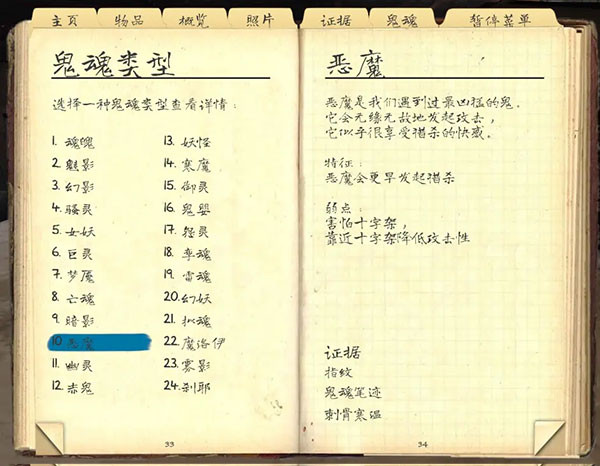 主页
物品
概览
照片
证据
鬼魂
暂停菜单
鬼魂类型
选择一种鬼魂类型查看详情：
1. 魂魄
2. 魅影
3. 幻影
4. 骚灵
5. 女妖
6. 巨灵
7. 梦魇
8. 亡魂
9. 暗影
10. 恶魔
11. 幽灵
12. 赤鬼
13. 妖怪
14. 寒魔
15. 御灵
16. 鬼婴
17. 怨灵
18. 孪魂
19. 雷魂
20. 幻妖
21. 拟魂
22. 魔洛伊
23. 雾影
24. 刹耶
33
恶魔
恶魔是我们遇到过最凶猛的鬼.
它会无缘无故地发起攻击，
它似乎很享受猎杀的快感.
特征：
恶魔会更早发起猎杀
弱点：
害怕十字架，
靠近十字架降低攻击性
证据
指纹
鬼魂笔迹
刺骨寒温
34